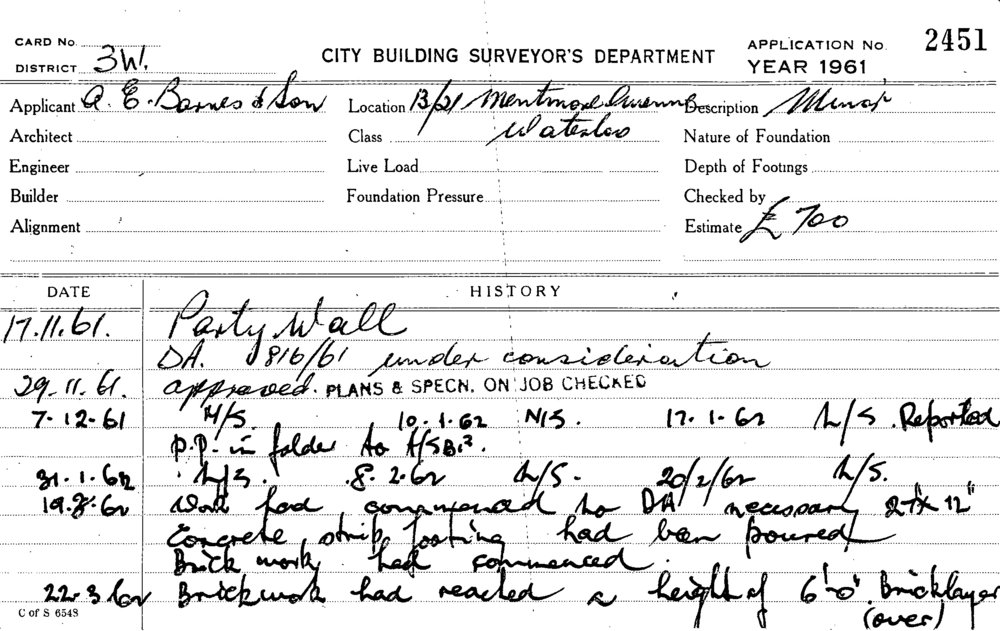 CARD No.
DISTRICT 3W.
CITY BUILDING SURVEYOR'S DEPARTMENT
APPLICATION No. 2451
YEAR 1961
Applicant A. E. Barnes & Son Location 13/21 Mentmore Avenue Description Minor
Architect Class Waterloo Nature of Foundation
Engineer Live Load Depth of Footings
Builder Foundation Pressure Checked by
Alignment Estimate £700
DATE HISTORY
17.11.61. Party Wall
DA. 816/61 under consideration
29.11.61. approved. PLANS & SPECN. ON JOB CHECKED
7.12.61 N/S. 10.1.62 N/S. 17.1.62 N/S. Reported
P.P. in folder to
31.1.62 N/S. 8.2.62 N/S. 20/2/62 N/S.
19.3.62 Work had commenced no DA necessary 27" x 12"
Concrete strip footing had been poured
Brick work had commenced.
22.3.62 Brickwork had reached a height of 6'-0". Bricklayer
(over)
C of S 6548